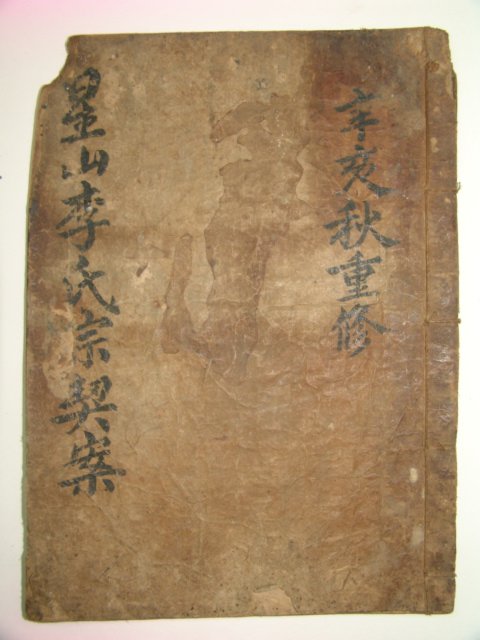 辛亥秋重修
星山李氏宗契案